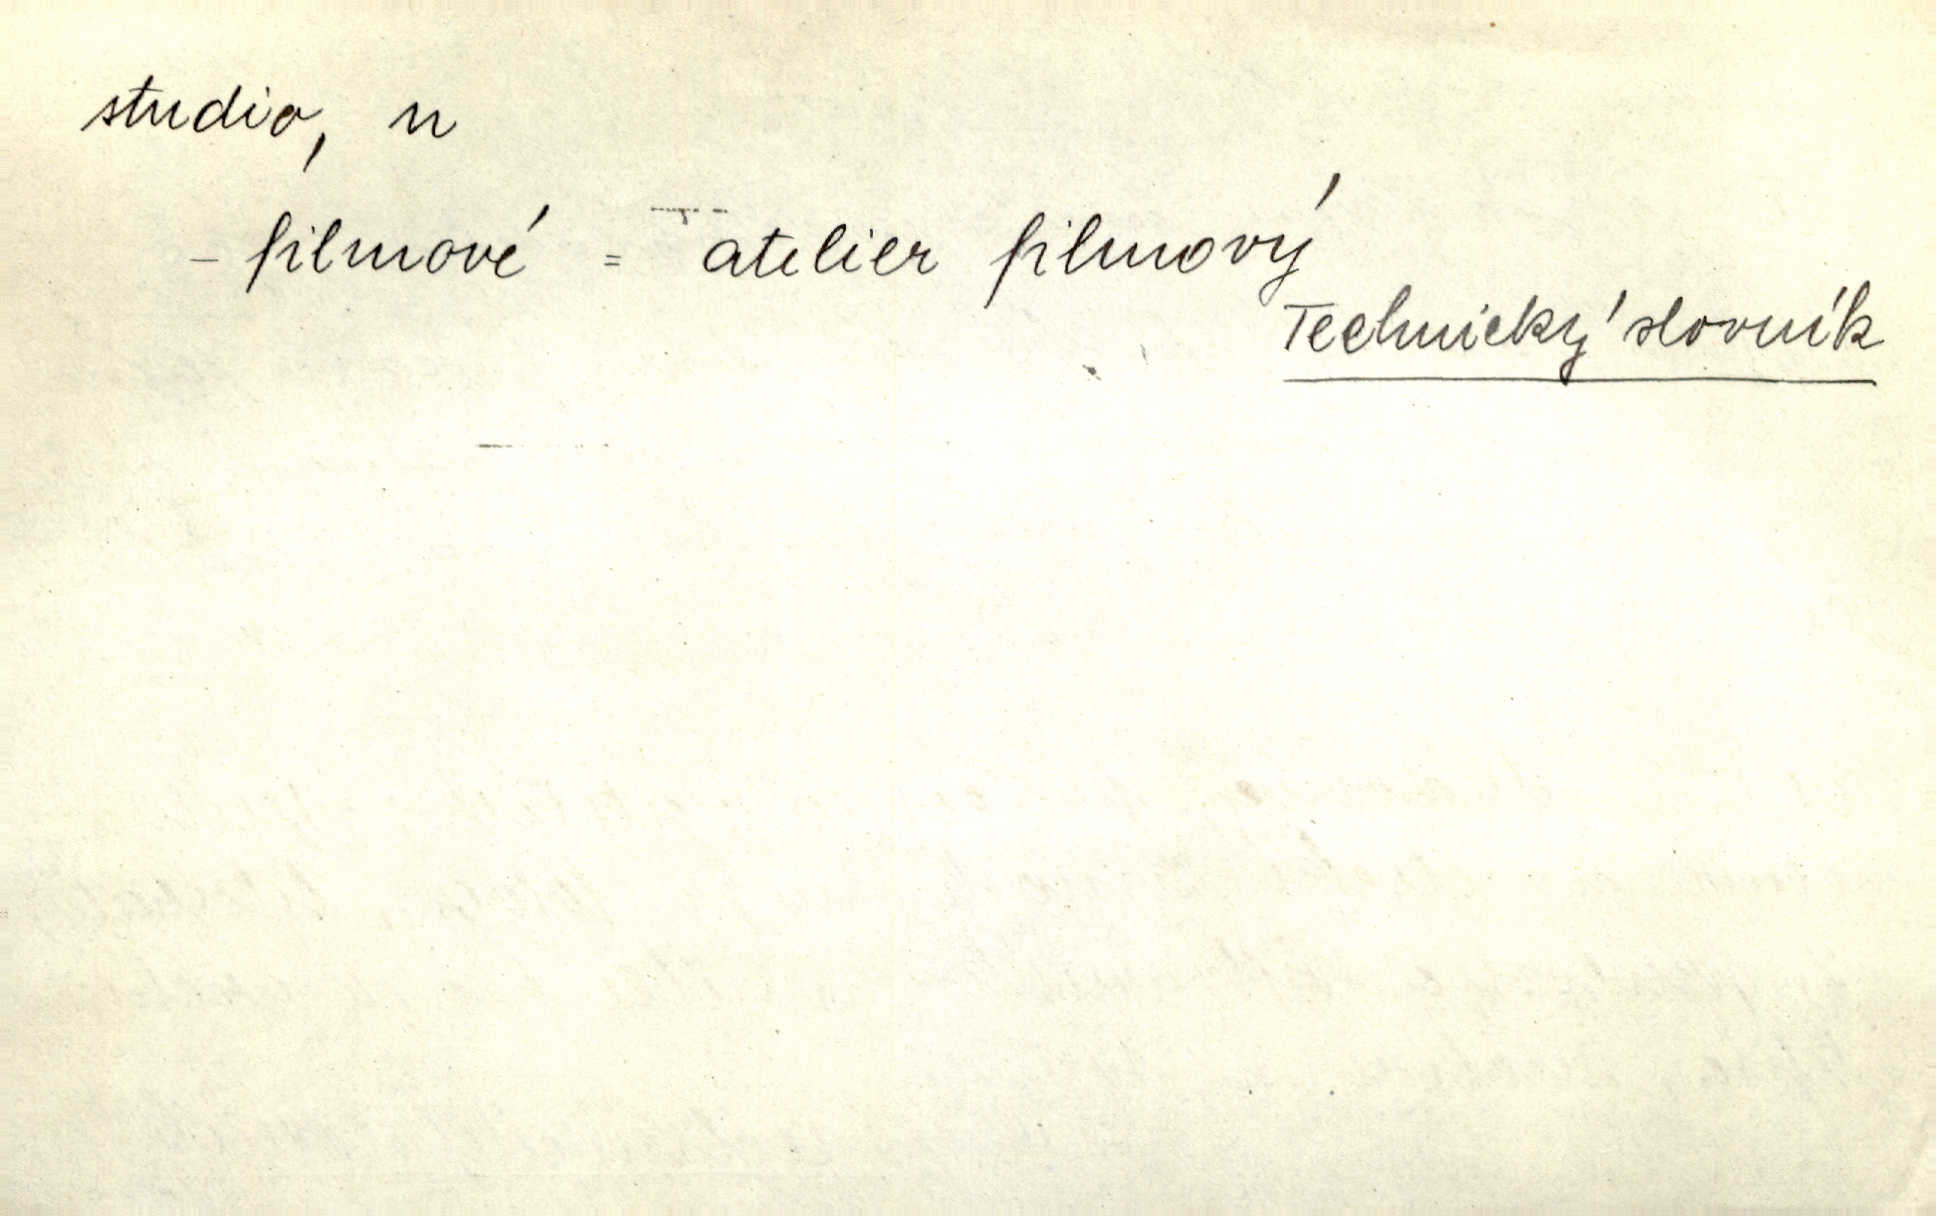 studio, n
- filmové = atelier filmový
Technický slovník